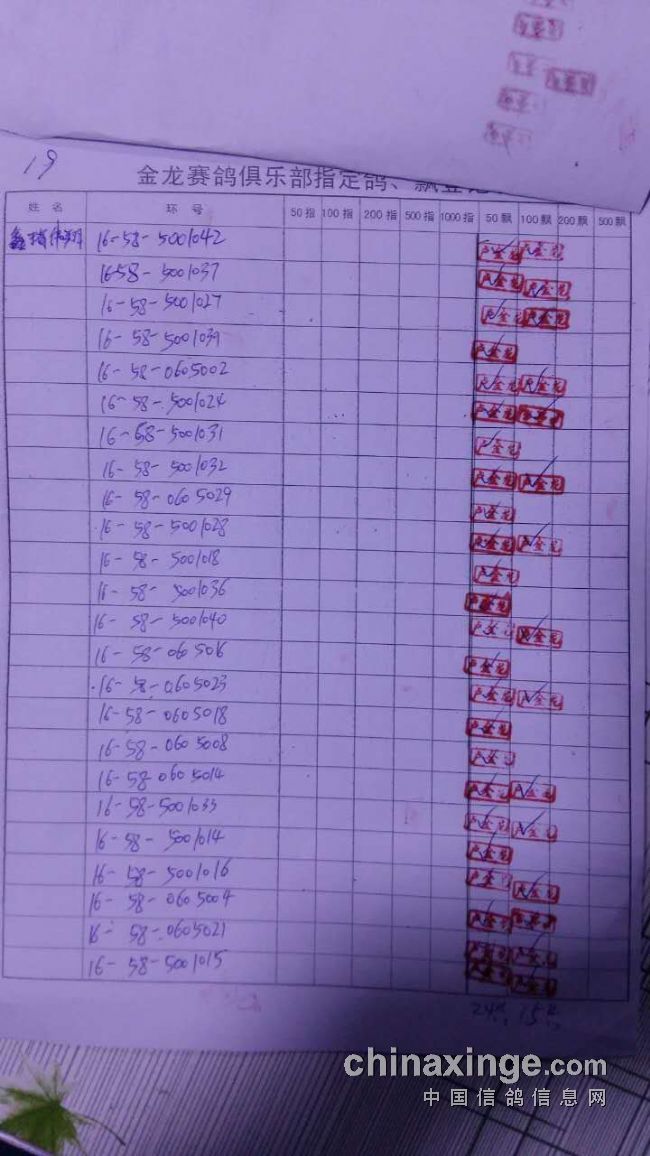 19
金龙赛鸽俱乐部指定鸽、飘登记
姓 名 环 号 50指 100指 200指 500指 1000指 50飘 100飘 200飘 500飘
16-58-5001042
1658-5001037
16-58-5001027
16-58-5001039
16-58-0605002
16-58-5001024
16-58-5001031
16-58-5001032
16-58-0605029
16-58-5001028
16-58-5001018
16-58-5001036
16-58-5001040
16-58-060506
16-58-0605023
16-58-0605018
16-58-0605008
16-58 0605014
16-58-5001033
16-58-5001014
16-58-5001016
16-58-0605004
16-58-0605021
16-58-5001015
24 15
chinaxinge.com
中国信鸽信息网